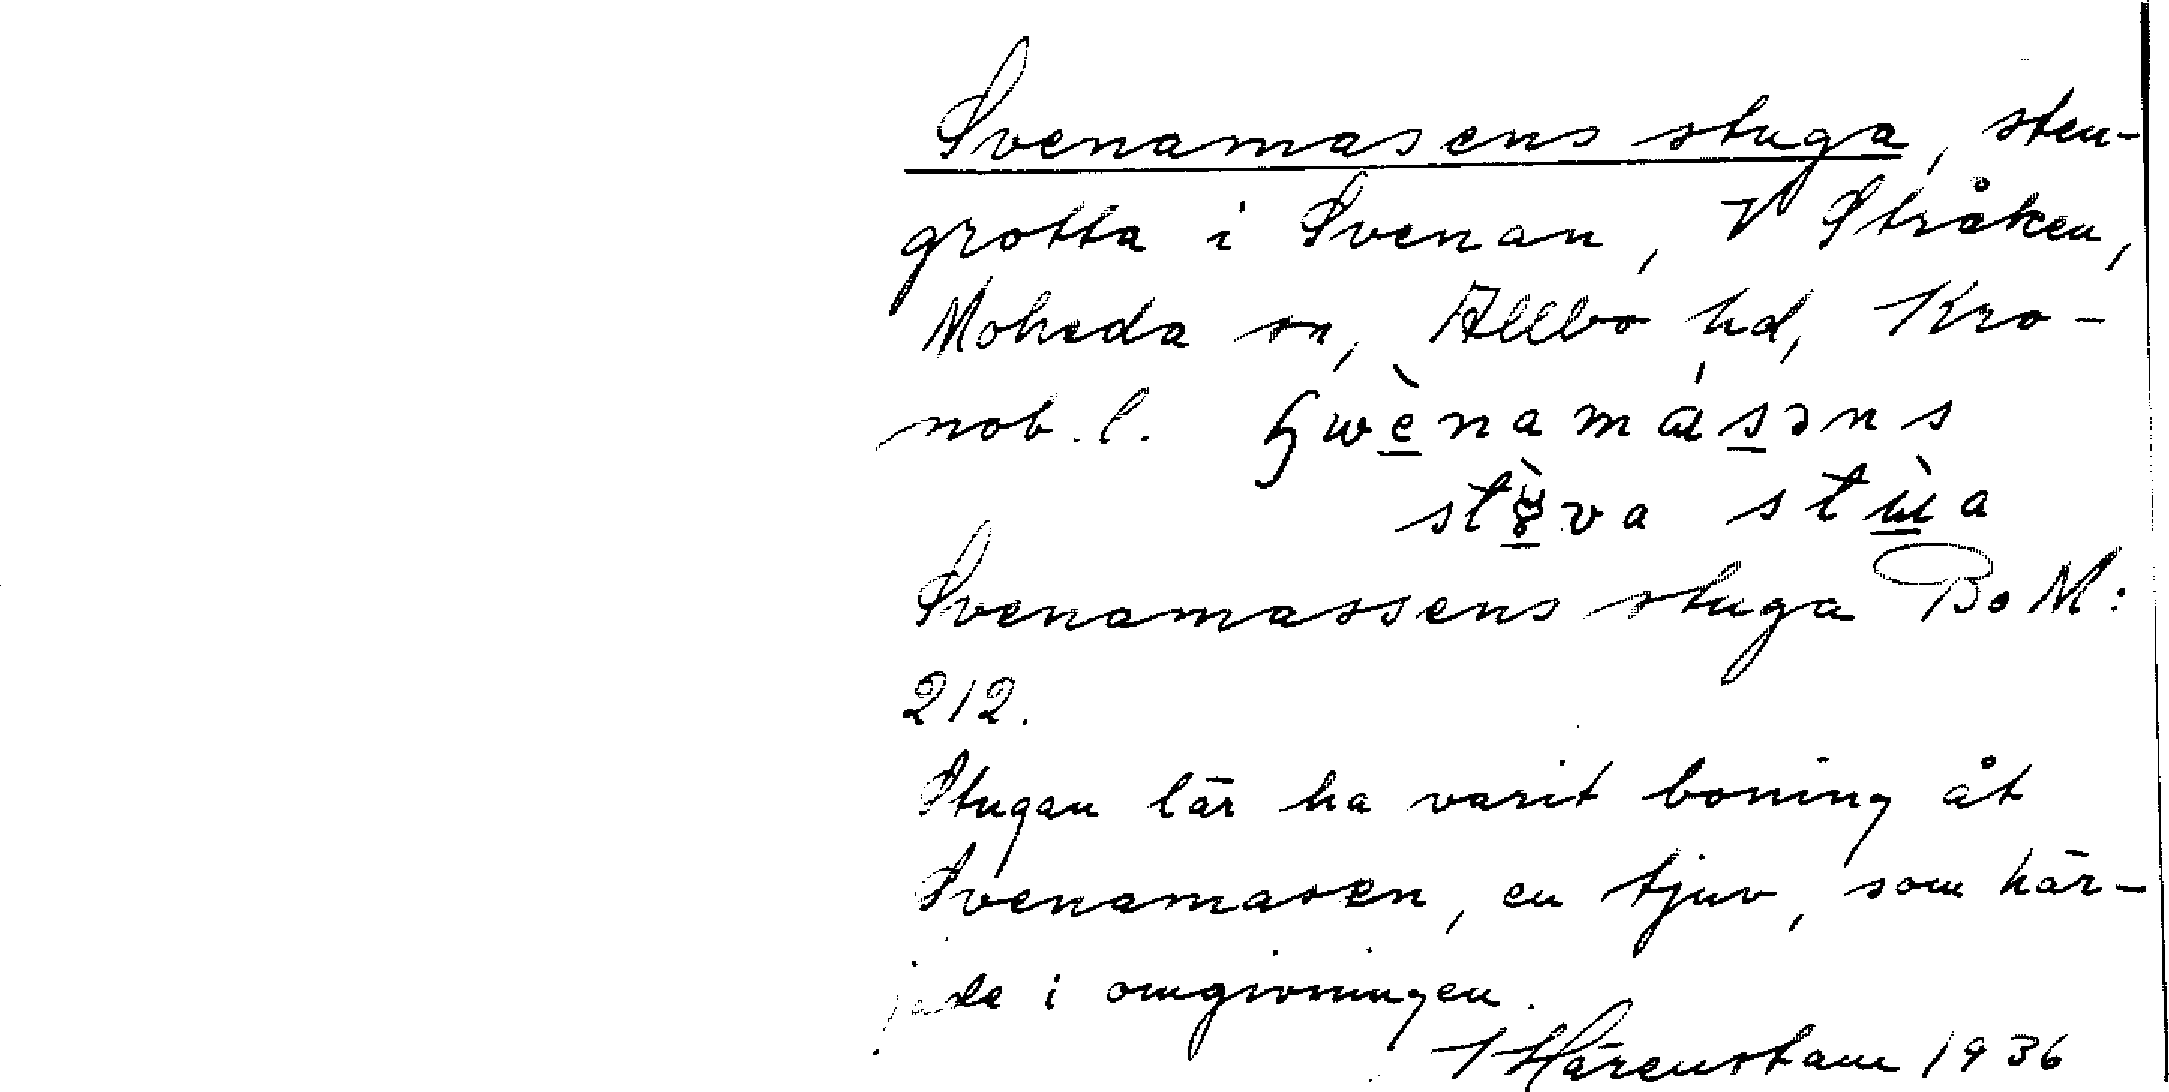 Svenamasens stuga, sten-
grotta i Svenan, V Stråken,
Moheda sn, Allbo hd, Kro-
nob. l. ɧwènamásəns
stùva stùa
Svenamassens stuga Bo M:
212.
Stugan lär ha varit boning åt
Svenamasen, en tjuv, som här-
jade i omgivningen.
Härenstam 1936